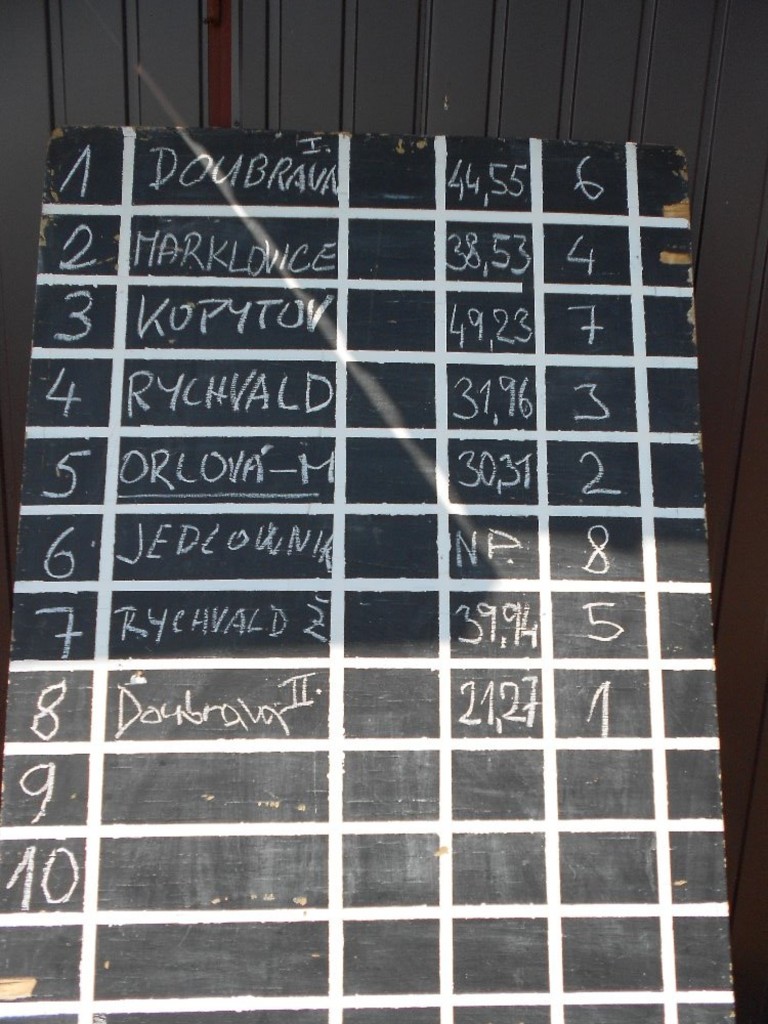 1 DOUBRAVA I. 44,55 6
2 MARKLOVICE 38,53 4
3 KOPYTOV 49,23 7
4 RYCHVALD 31,96 3
5 ORLOVÁ-M 30,31 2
6 JEDLOWNIK NP. 8
7 RYCHVALD Ž 39,94 5
8 Doubrava II. 21,27 1
9
10